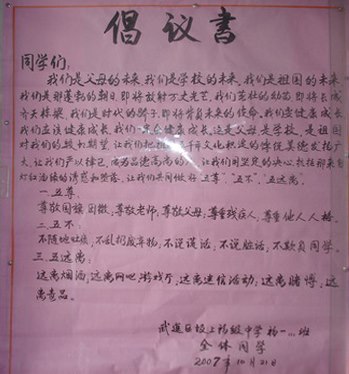 倡议书
同学们:
我们是父母的未来,我们是学校的未来,我们是祖国的未来
我们是那蓬勃的朝日,即将放射万丈光芒,我们是茁壮的幼苗,即将长成
齐天栋梁,我们是时代的骄子,即将背负未来的使命,我们要健康成长
我们应该健康成长,我们 健康成长,这是父母是学校,是祖国
对我们的殷切期望,让我们把 文化积淀的传统美德发扬广
大,让我们严以律己,成为品德高尚的人,让我们用坚定的决心,抗拒那来自
灯红酒绿的诱惑和堕落,让我们共同做好“五尊”,“五不”,“五远离”
一.五尊:
尊敬国旗国徽,尊敬老师,尊敬父母,尊重残疾人,尊重他人人格。
二.五不:
不随地吐痰,不乱扔废弃物,不说谎话,不说脏话,不欺负同学。
三.五远离:
远离烟酒,远离网吧、游戏厅,远离迷信活动,远离赌博,远
离毒品。
武 区坂上 级中学初一 班
全体同学
2007年10月21日